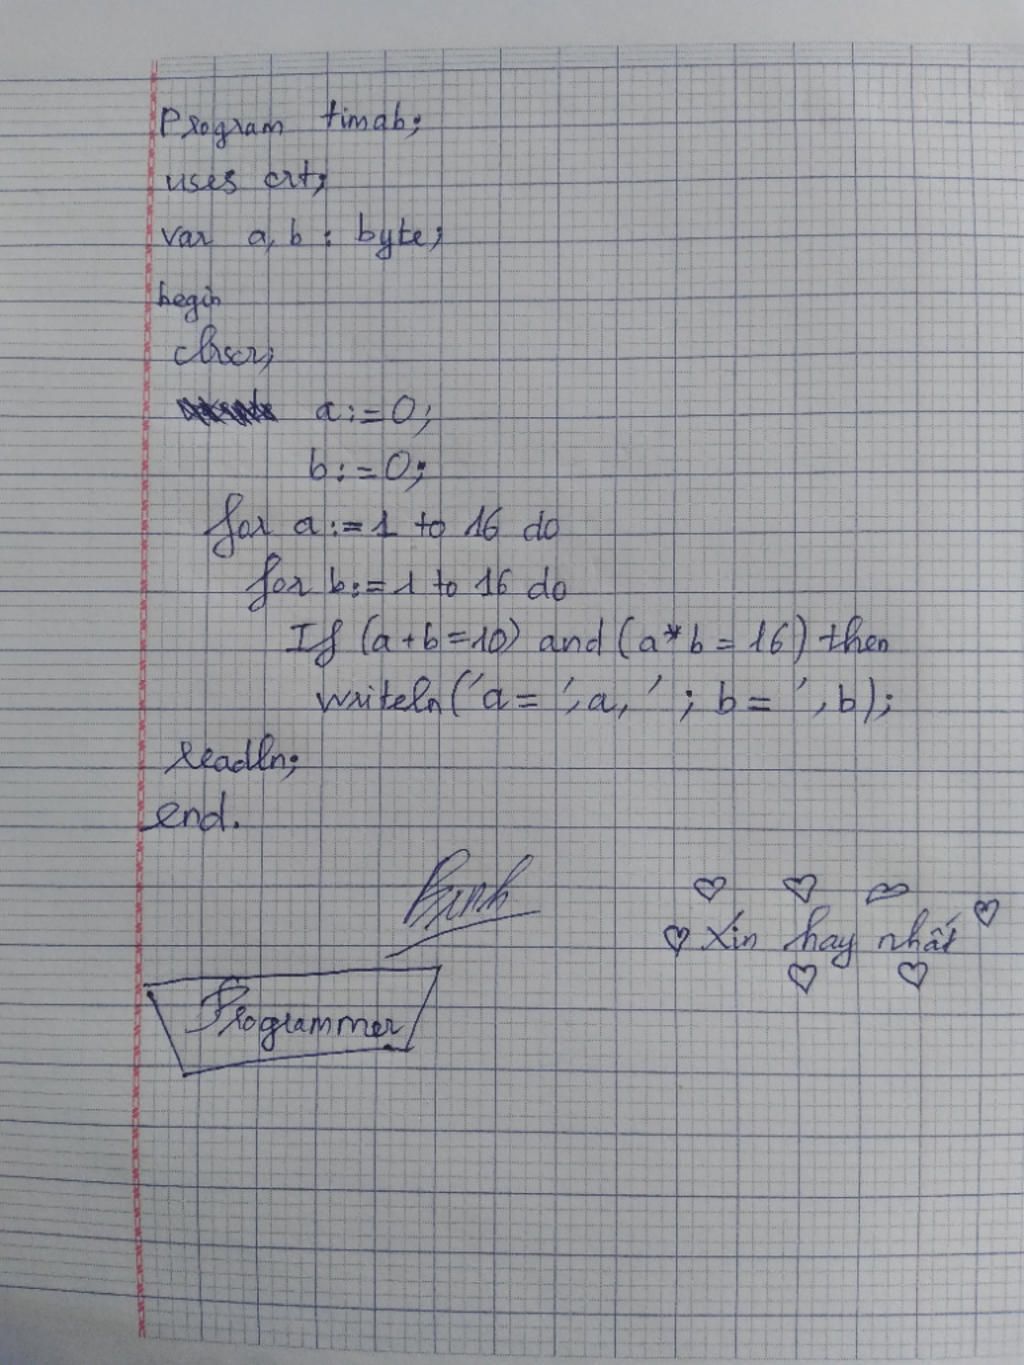 Program timab;
uses crt;
var a, b : byte;
begin
clrscr;
a := 0;
b := 0;
for a := 1 to 16 do
for b := 1 to 16 do
If (a + b = 10) and (a * b = 16) then
writeln('a = ', a, ' ; b = ', b);
readln;
end.
Binh
Xin hay nhất
Programmer